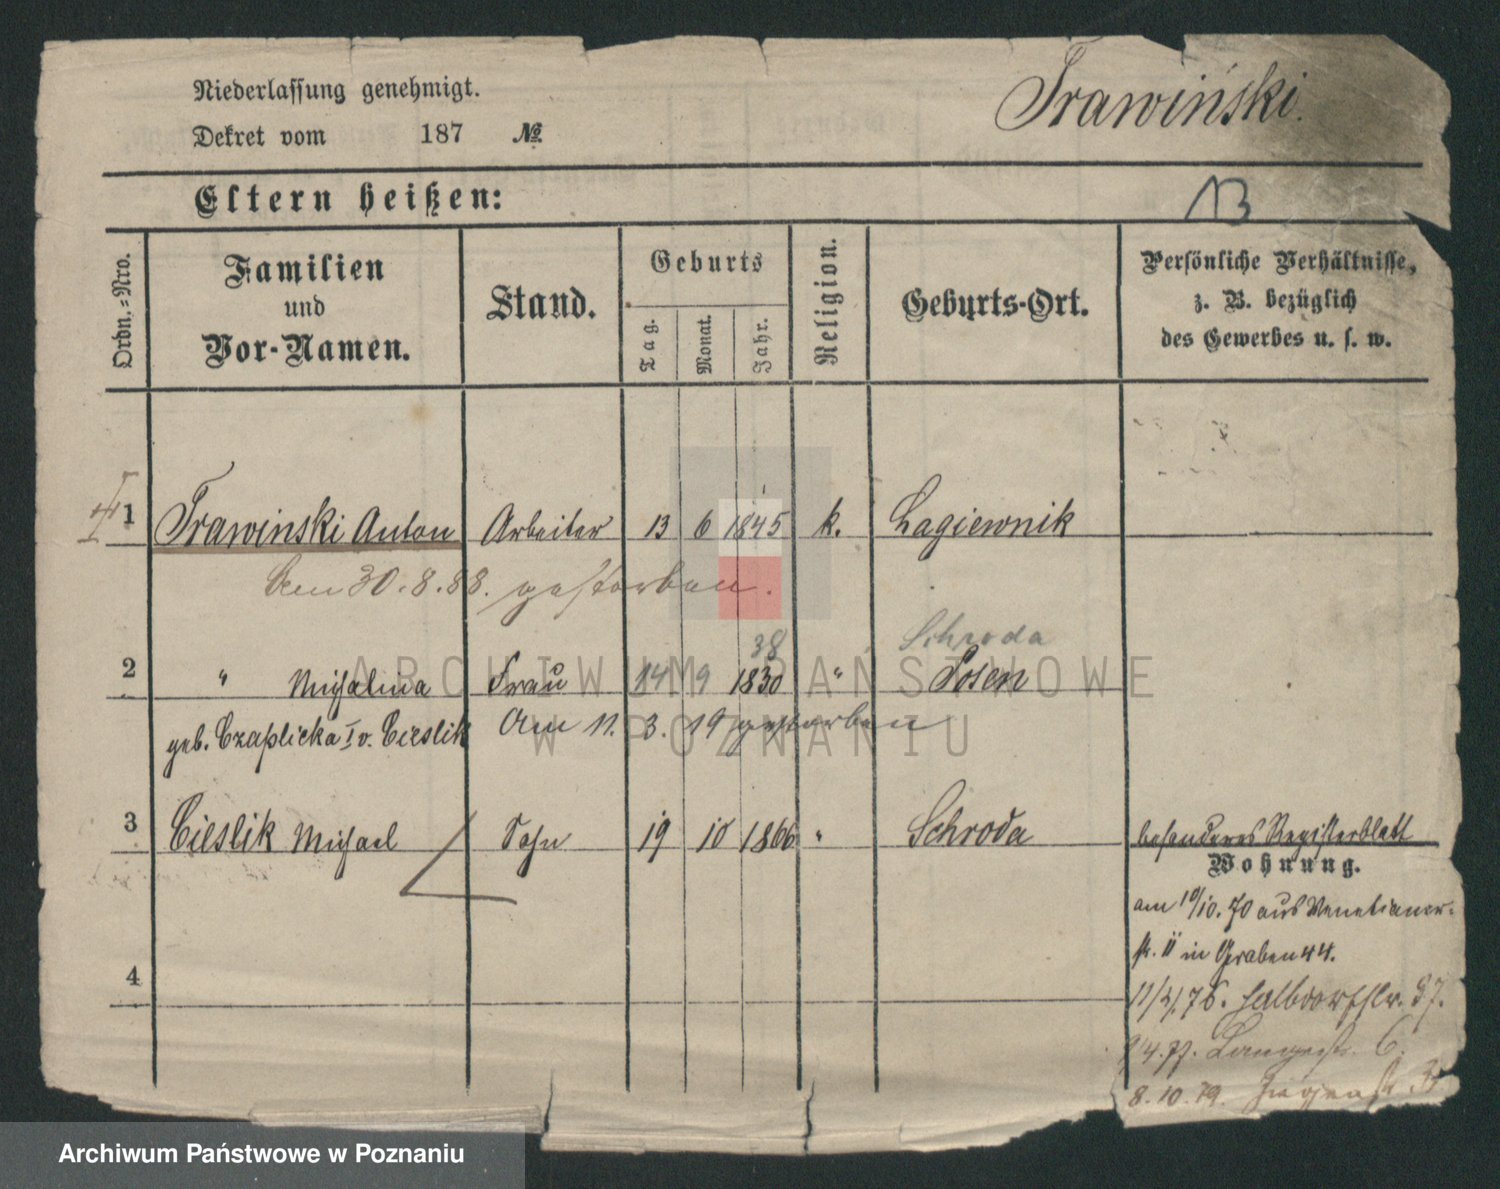 Niederlassung genehmigt.
Trawiński.
Dekret vom 187 №
Eltern heißen:
13
Ordn.-Nro.
Familien
und
Vor-Namen.
Stand.
Geburts
Tag.
Monat.
Jahr.
Religion.
Geburts-Ort.
Persönliche Verhältnisse,
z. B. bezüglich
des Gewerbes u. s. w.
1 Trawinski Anton Arbeiter 13 6 1845 k. Lagiewnik
Den 30.8.88. gestorben.
38 Schroda
2 " Michalina Frau 14 9 1830 " Posen
geb. Czaplicka I v. Cieslik
Am 11. 3. 19 gestorben
3 Cieslik Michael Sohn 19 10 1866 " Schroda besonderes Registerblatt
Wohnung.
am 10/10. 70 aus Venetianer-
str. 11 in Graben 44.
4
11/4. 76. Halbdorfstr. 37.
4.77. Langestr. 6.
8.10.79.
ARCHIWUM PAŃSTWOWE
W POZNANIU
Archiwum Państwowe w Poznaniu